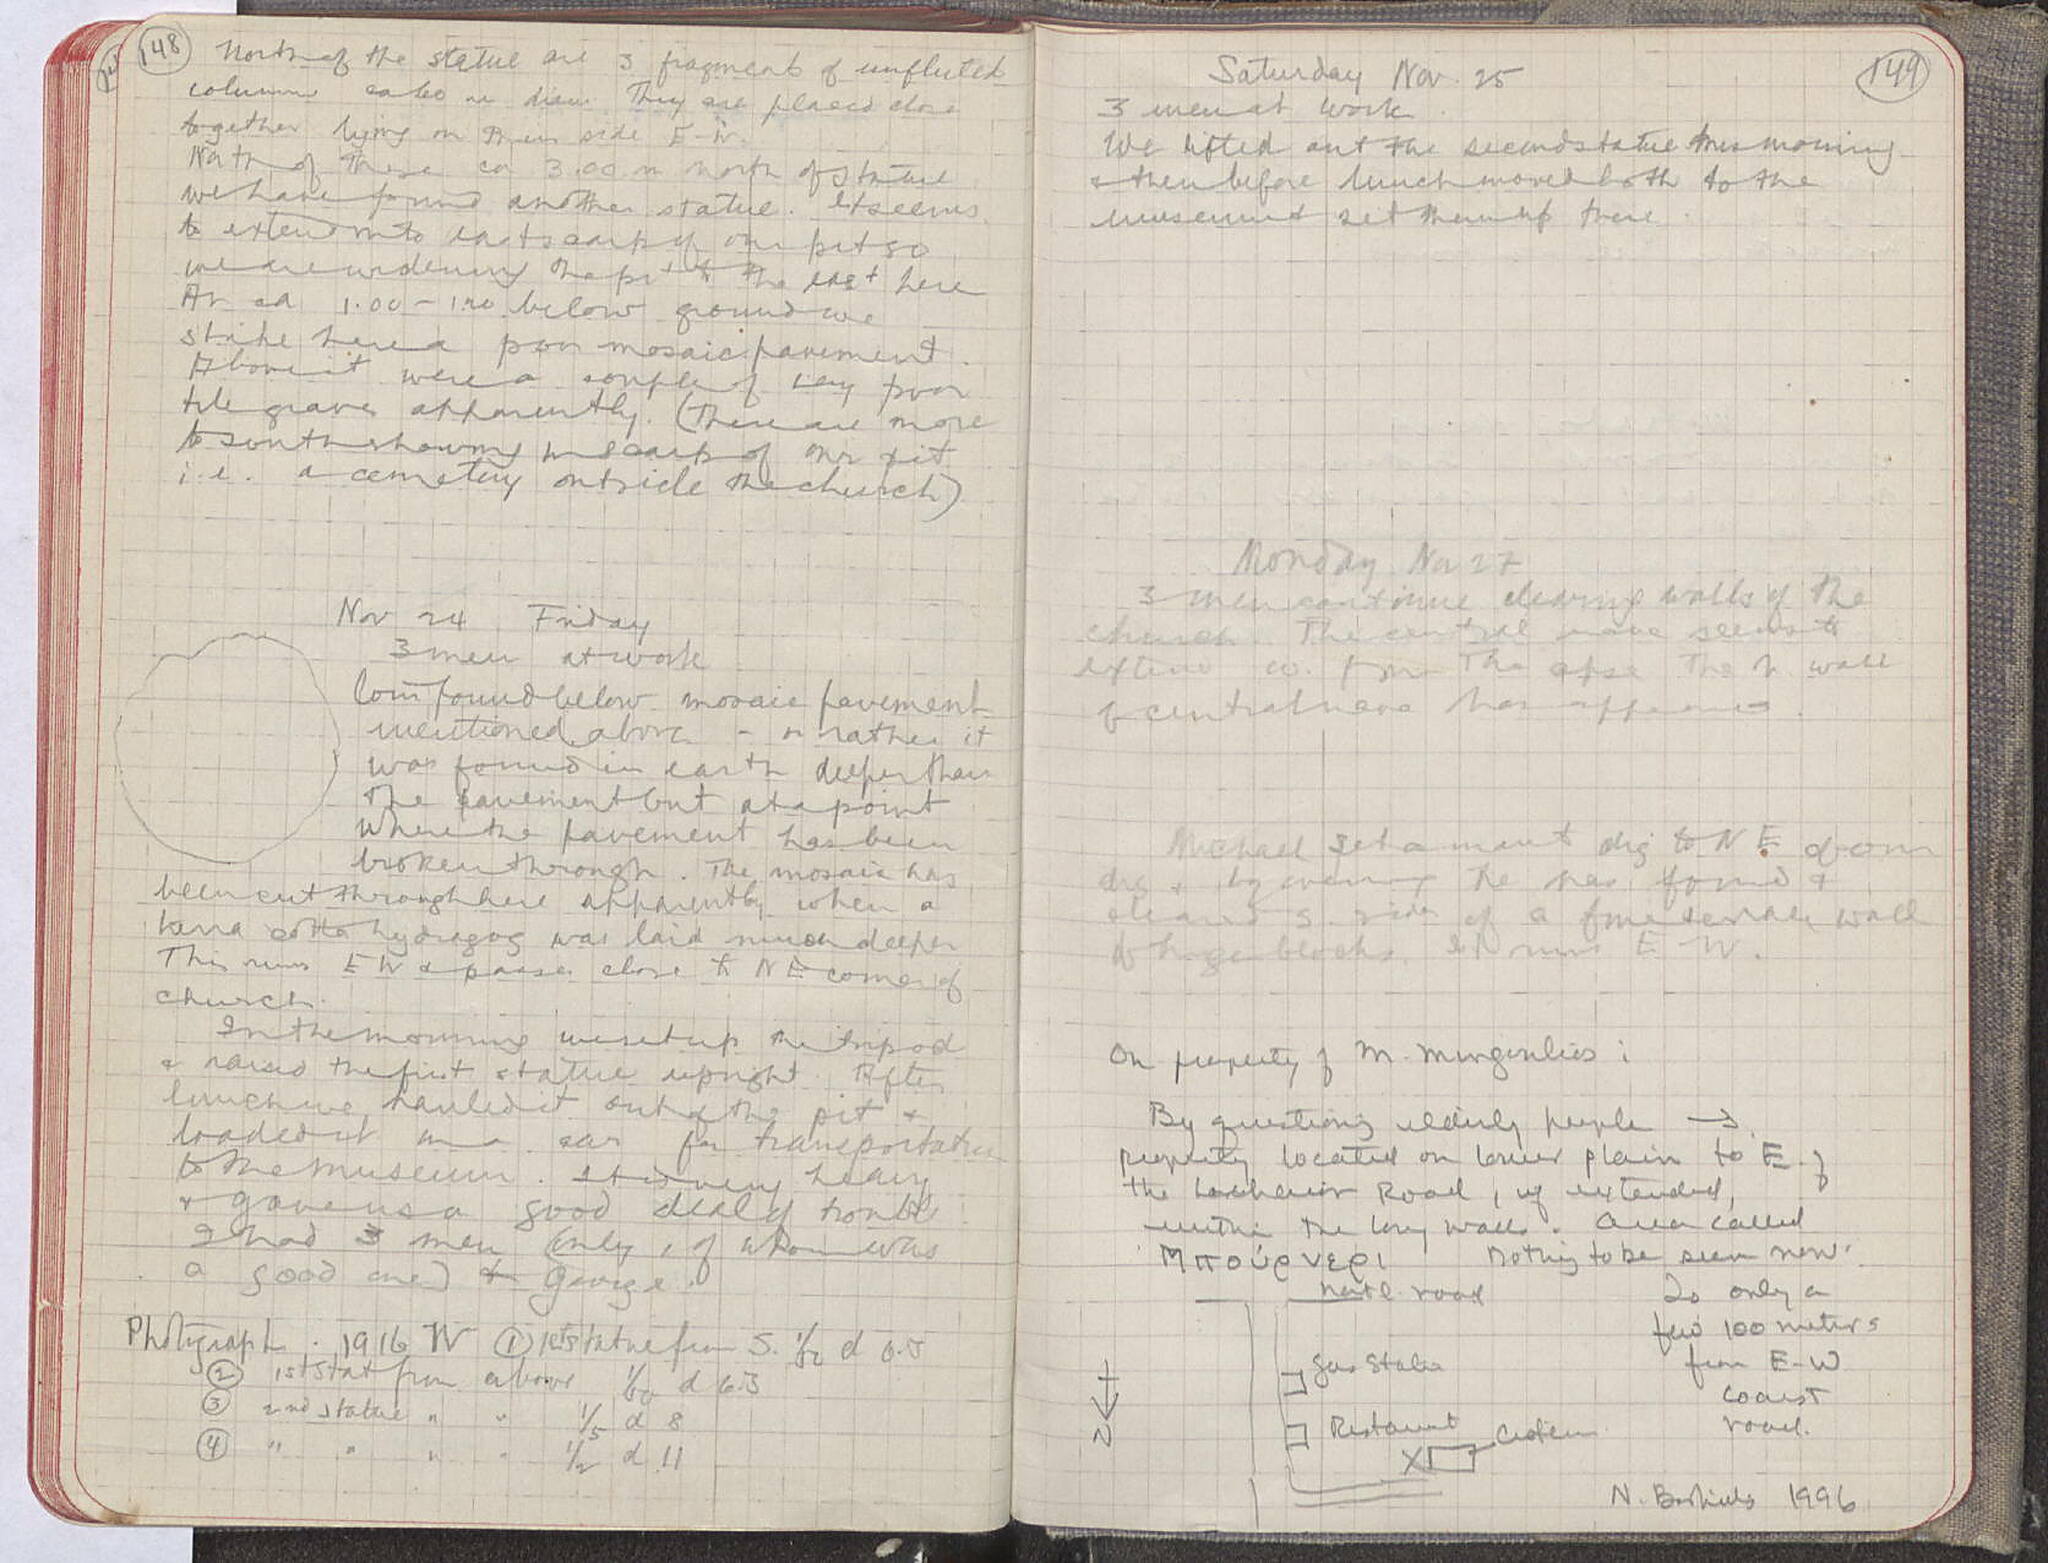 148
North of the statue are 3 fragments of unfluted
columns ca 60 m diam. They are placed close
together lying on their side E-W.
North of these ca 3.00 m north of statue
we have found another statue. It seems
to extend into east scarp of our pit so
we are widening the pit to the east here
At ca 1.00 - 1.20 below ground we
strike here a poor mosaic pavement.
Above it were a couple of very poor
tile graves apparently. (There are more
to south showing in scarp of our pit
i.e. a cemetery outside the church)
Nov 24 Friday
3 men at work
Coin found below mosaic pavement
mentioned above - or rather it
was found in earth deeper than
the pavement but at a point
where the pavement has been
broken through. The mosaic has
been cut through here apparently when a
terra cotta hydragog was laid much deeper
This runs E W & passes close to N E corner of
church.
In the morning we set up the tripod
& raised the first statue upright. After
lunch we hauled it out of the pit &
loaded it on a car for transportation
to the museum. It is very heavy
& gave us a good deal of trouble
I had 3 men (only 1 of whom was
a good one) & George.
Photograph. 1916 IV ① 1st statue from S. d 6.3
② 1st stat from above d 6.3
③ 2nd statue " " 1/5 d 8
④ " " " " 1/2 d 11
149
Saturday Nov. 25
3 men at work.
We lifted out the second statue this morning
& then before lunch moved both to the
museum & set them up there.
Monday Nov 27
3 men continue clearing walls of the
church. The central nave seems to
extend w. from the apse The N. wall
of central nave has appeared.
Michael set a man to dig to N E of our
dig & by evening he has found &
cleared S. side of a fine wall
of huge blocks. It runs E W.
On property of M. :
By questioning elderly people →
property located on lower plain to E. of
the Lechaion Road, if extended,
within the long walls. Area called
Μπούρνερι Nothing to be seen now.
Nat'l road Is only a
few 100 meters
Gas Station from E-W
coast
N Restaurant Cistern road.
X
N. 1996